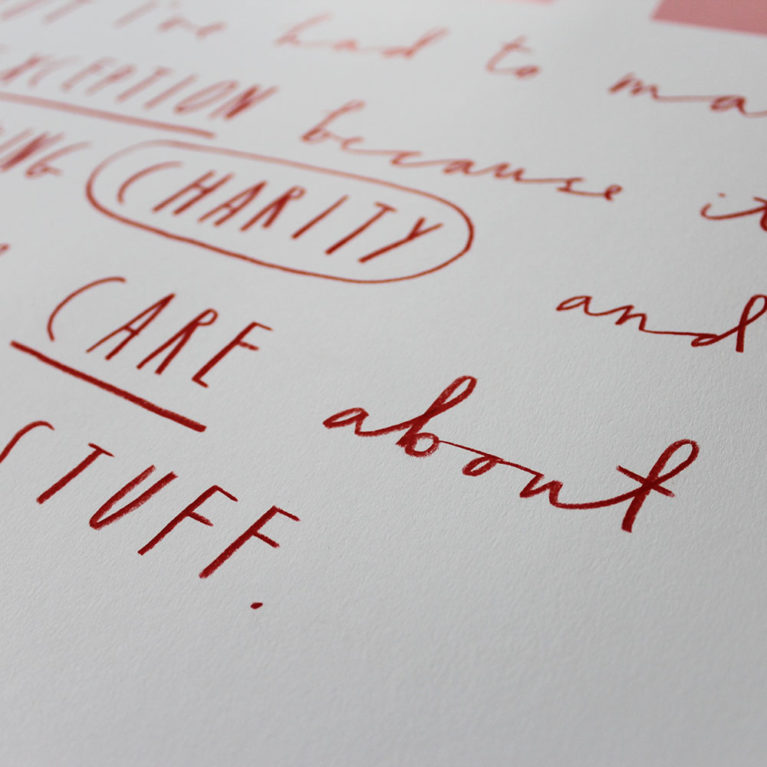 I've had to ma
EXCEPTION because it
ING CHARITY and
CARE about
STUFF.